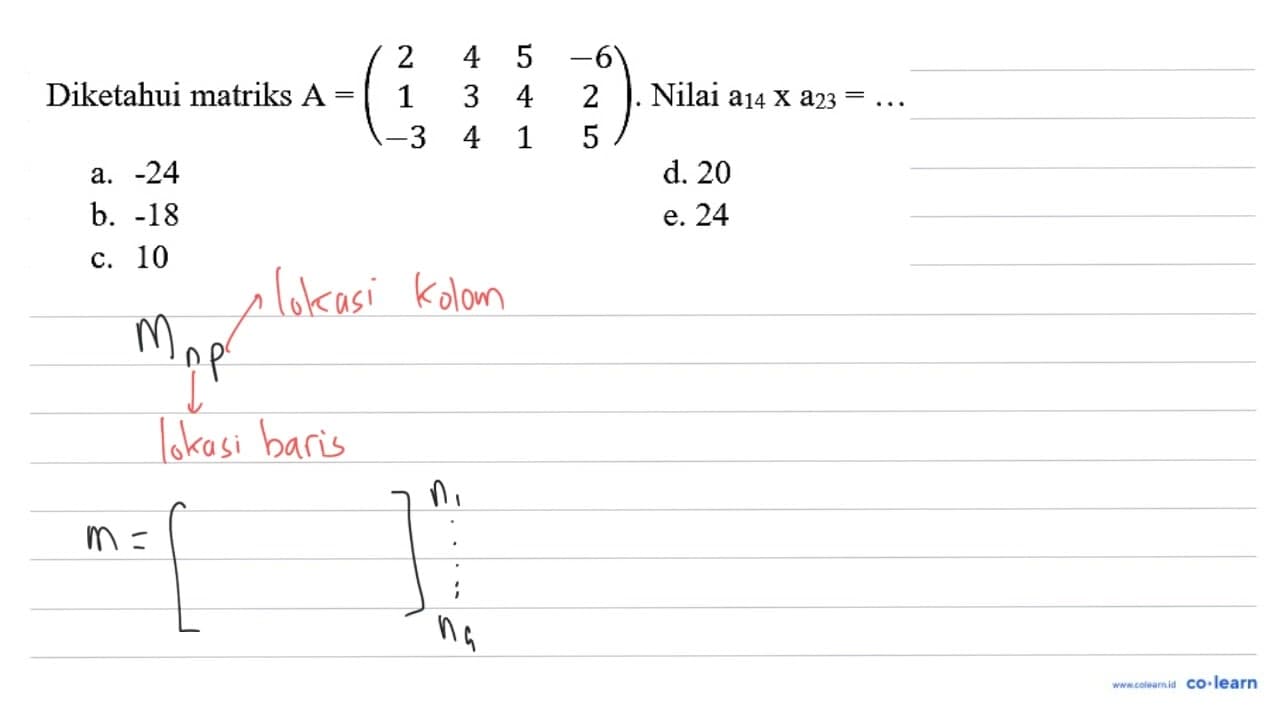 Diketahui matriks A = ( 2 4 5 −6
1 3 4 2
−3 4 1 5 ). Nilai a₁₄ x a₂₃ = ...
a. -24
b. -18
c. 10
d. 20
e. 24
lokasi kolom
Mnp
lokasi baris
m = [ ] n₁
⋮
www.colearn.id co·learn